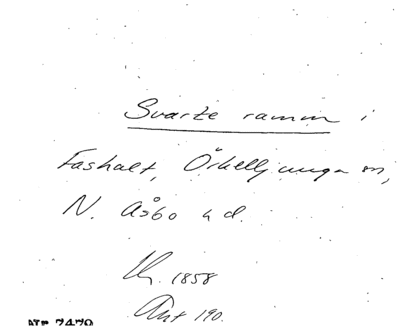 Svarte ramm i
Fashalt, Örkelljunga sn,
N. Åsbo hd.
1858
Ant 190.